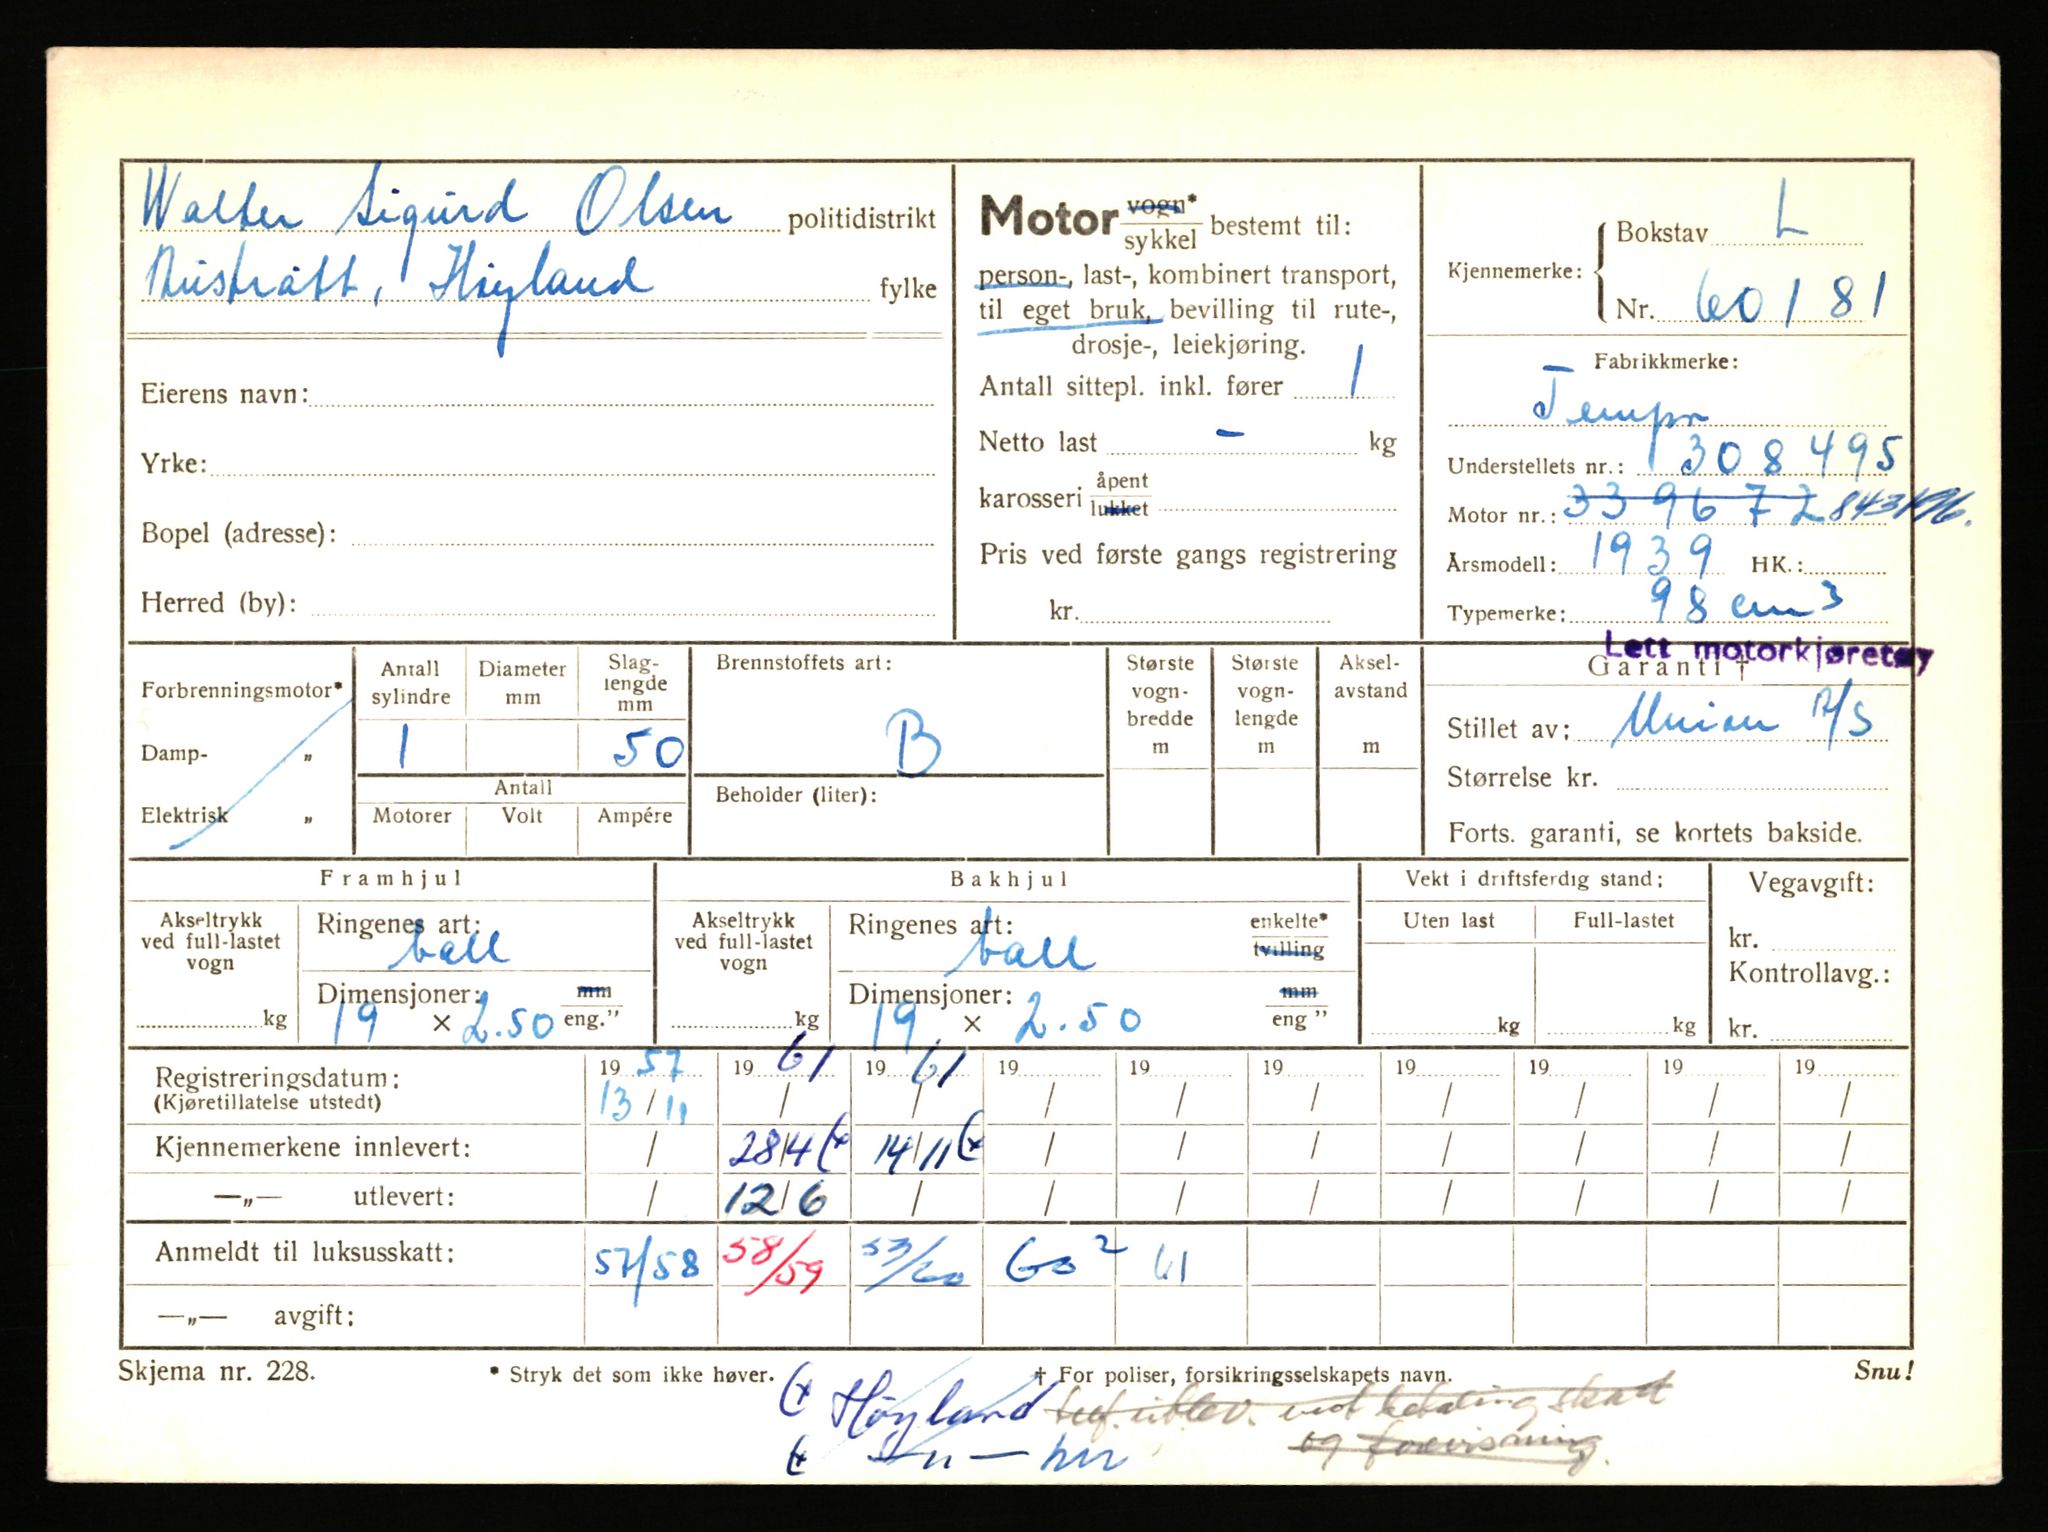 Walter Sigurd Olsen politidistrikt
Austrått, Høyland fylke
Eierens navn:
Yrke:
Bopel (adresse):
Herred (by):
Motor vogn* sykkel bestemt til:
person-, last-, kombinert transport,
til eget bruk, bevilling til rute-,
drosje-, leiekjøring.
Antall sittepl. inkl. fører 1
Netto last – kg
karosseri åpent lukket
Pris ved første gangs registrering
kr.
Kjennemerke: Bokstav L
Nr. 60181
Fabrikkmerke:
Tempo
Understellets nr.: 1308495
Motor nr.: 339672 843196.
Årsmodell: 1939 HK.:
Typemerke: 98 cm3
Lett motorkjøretøy
Garanti †
Stillet av: Union A/S
Størrelse kr.
Forts. garanti, se kortets bakside.
Forbrenningsmotor*
Damp- „
Elektrisk „
Antall sylindre 1
Diameter mm
Slag-lengde mm 50
Antall
Motorer Volt Ampére
Brennstoffets art:
B
Beholder (liter):
Største vogn-bredde m
Største vogn-lengde m
Aksel-avstand m
Framhjul
Akseltrykk ved full-lastet vogn kg
Ringenes art: ball
Dimensjoner: mm
19 × 2.50 eng.”
Bakhjul
Akseltrykk ved full-lastet vogn kg
Ringenes art: ball enkelte* tvilling
Dimensjoner: mm
19 × 2.50 eng ”
Vekt i driftsferdig stand:
Uten last Full-lastet
kg kg
Vegavgift:
kr.
Kontrollavg.:
kr.
Registreringsdatum: 19 57 19 61 19 61 19 19 19 19 19 19 19
(Kjøretillatelse utstedt) 13/11 / / / / / / / / /
Kjennemerkene innlevert: / 28/4 (x 14/11 (x / / / / / / /
—„— utlevert: / 12/6 / / / / / / / /
Anmeldt til luksusskatt: 57/58 58/59 53/60 60 2 61
—„— avgift:
Skjema nr. 228. * Stryk det som ikke høver. † For poliser, forsikringsselskapets navn. Snu!
(x Høyland utlev. ved betaling skatt
og forevisning.
(x — „ —